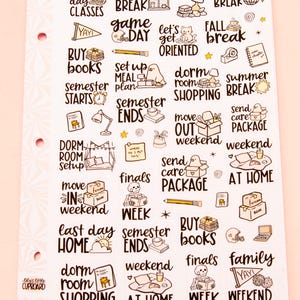 day
CLASSES
BREAK
BREAK
YAY!
game
DAY
let's
get
ORIENTED
FALL
break
BUY
books
set up
MEAL
plan
dorm
room
SHOPPING
summer
BREAK
semester
STARTS
semester
ENDS
move
OUT
weekend
send
care
PACKAGE
DORM
ROOM
setup
send
care
PACKAGE
weekend
AT HOME
move
IN
weekend
finals
WEEK
last day
HOME
semester
ENDS
BUY
books
dorm
room
SHOPPING
weekend
AT HOME
finals
WEEK
family
YAY!
WEEKEND
CUPBOARD